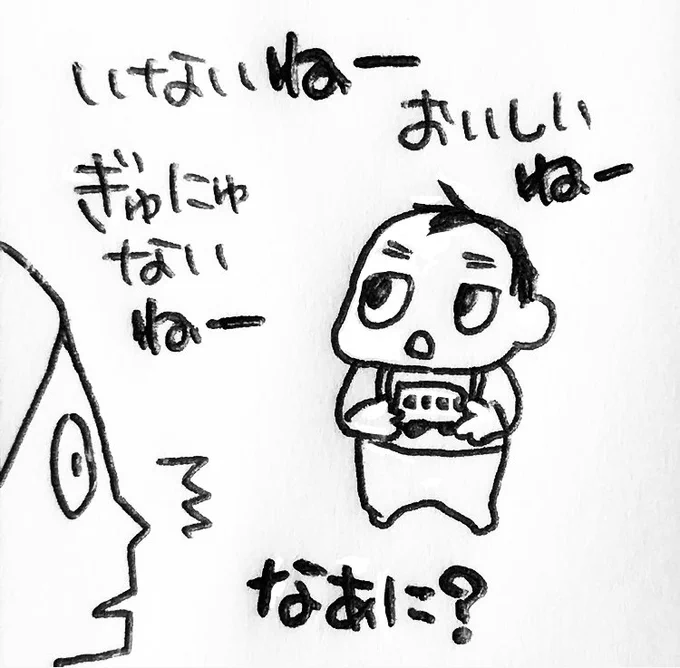 いないねー
おいしい
ねー
ぎゅにゅ
ない
ねー
なあに?